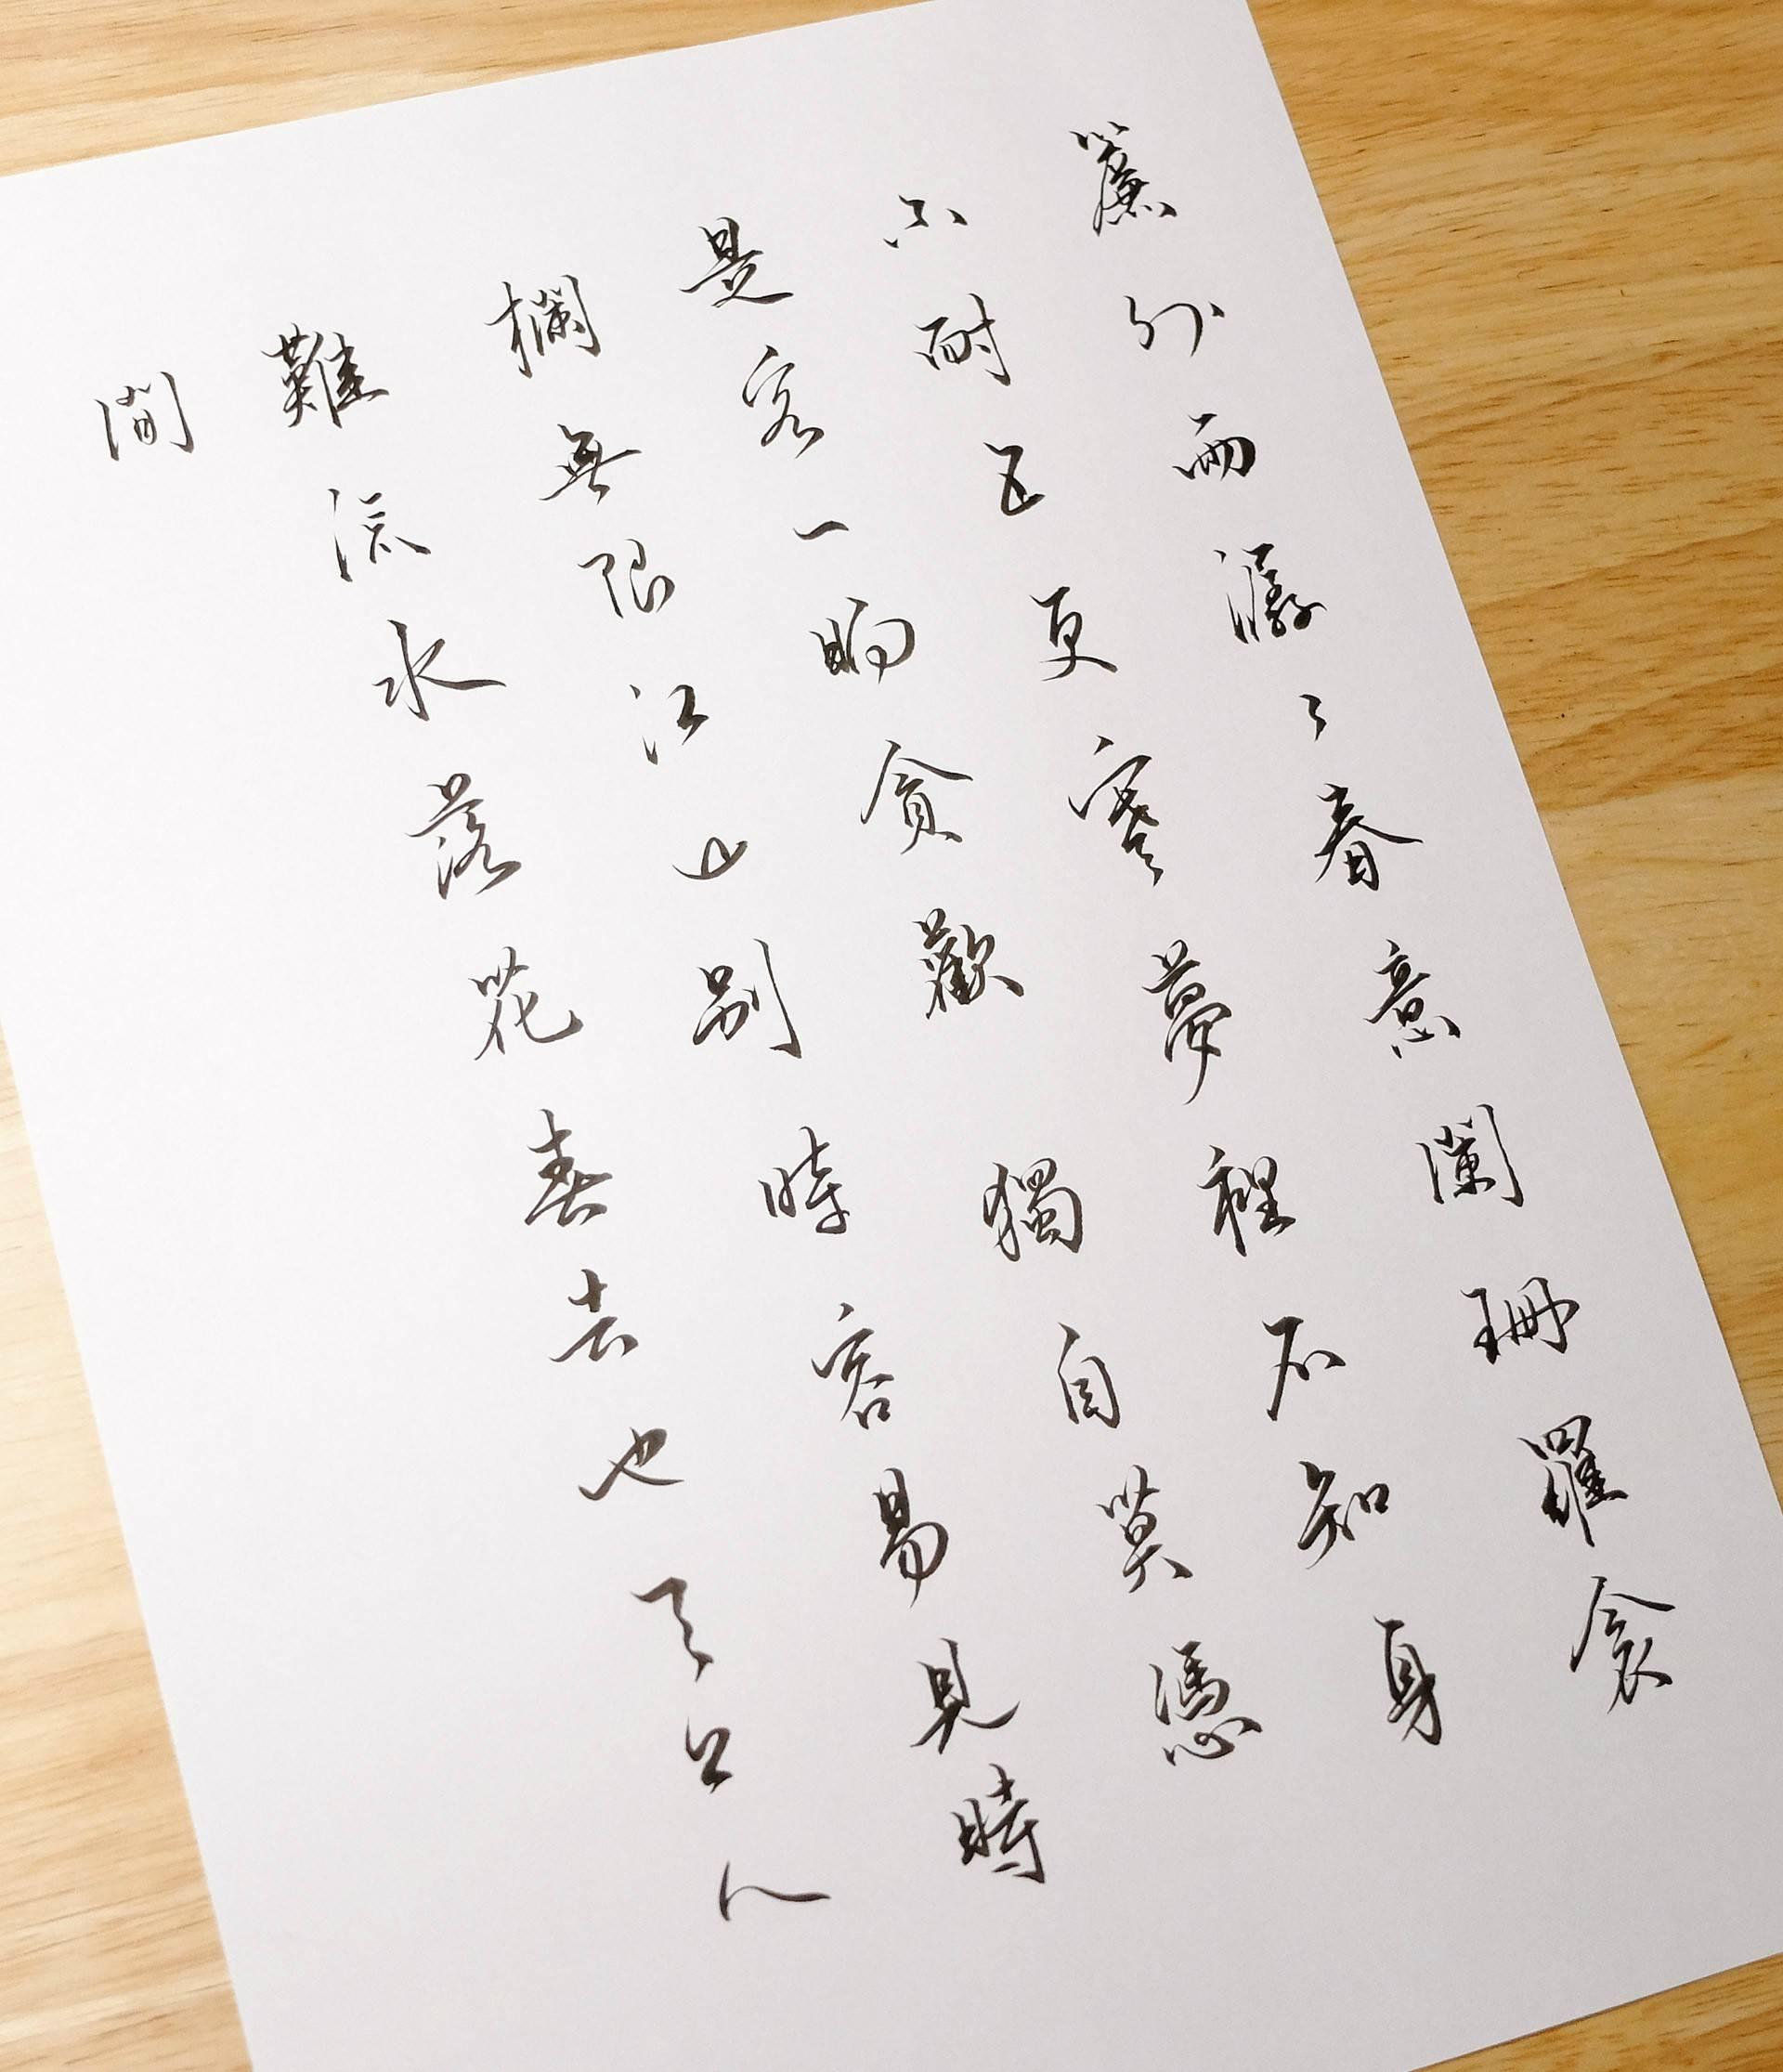 簾外雨潺々春意闌珊羅衾
不耐五更寒夢裡不知身
是客一晌貪歡　獨自莫憑
欄無限江山別時容易見時
難流水落花春去也天上人
間